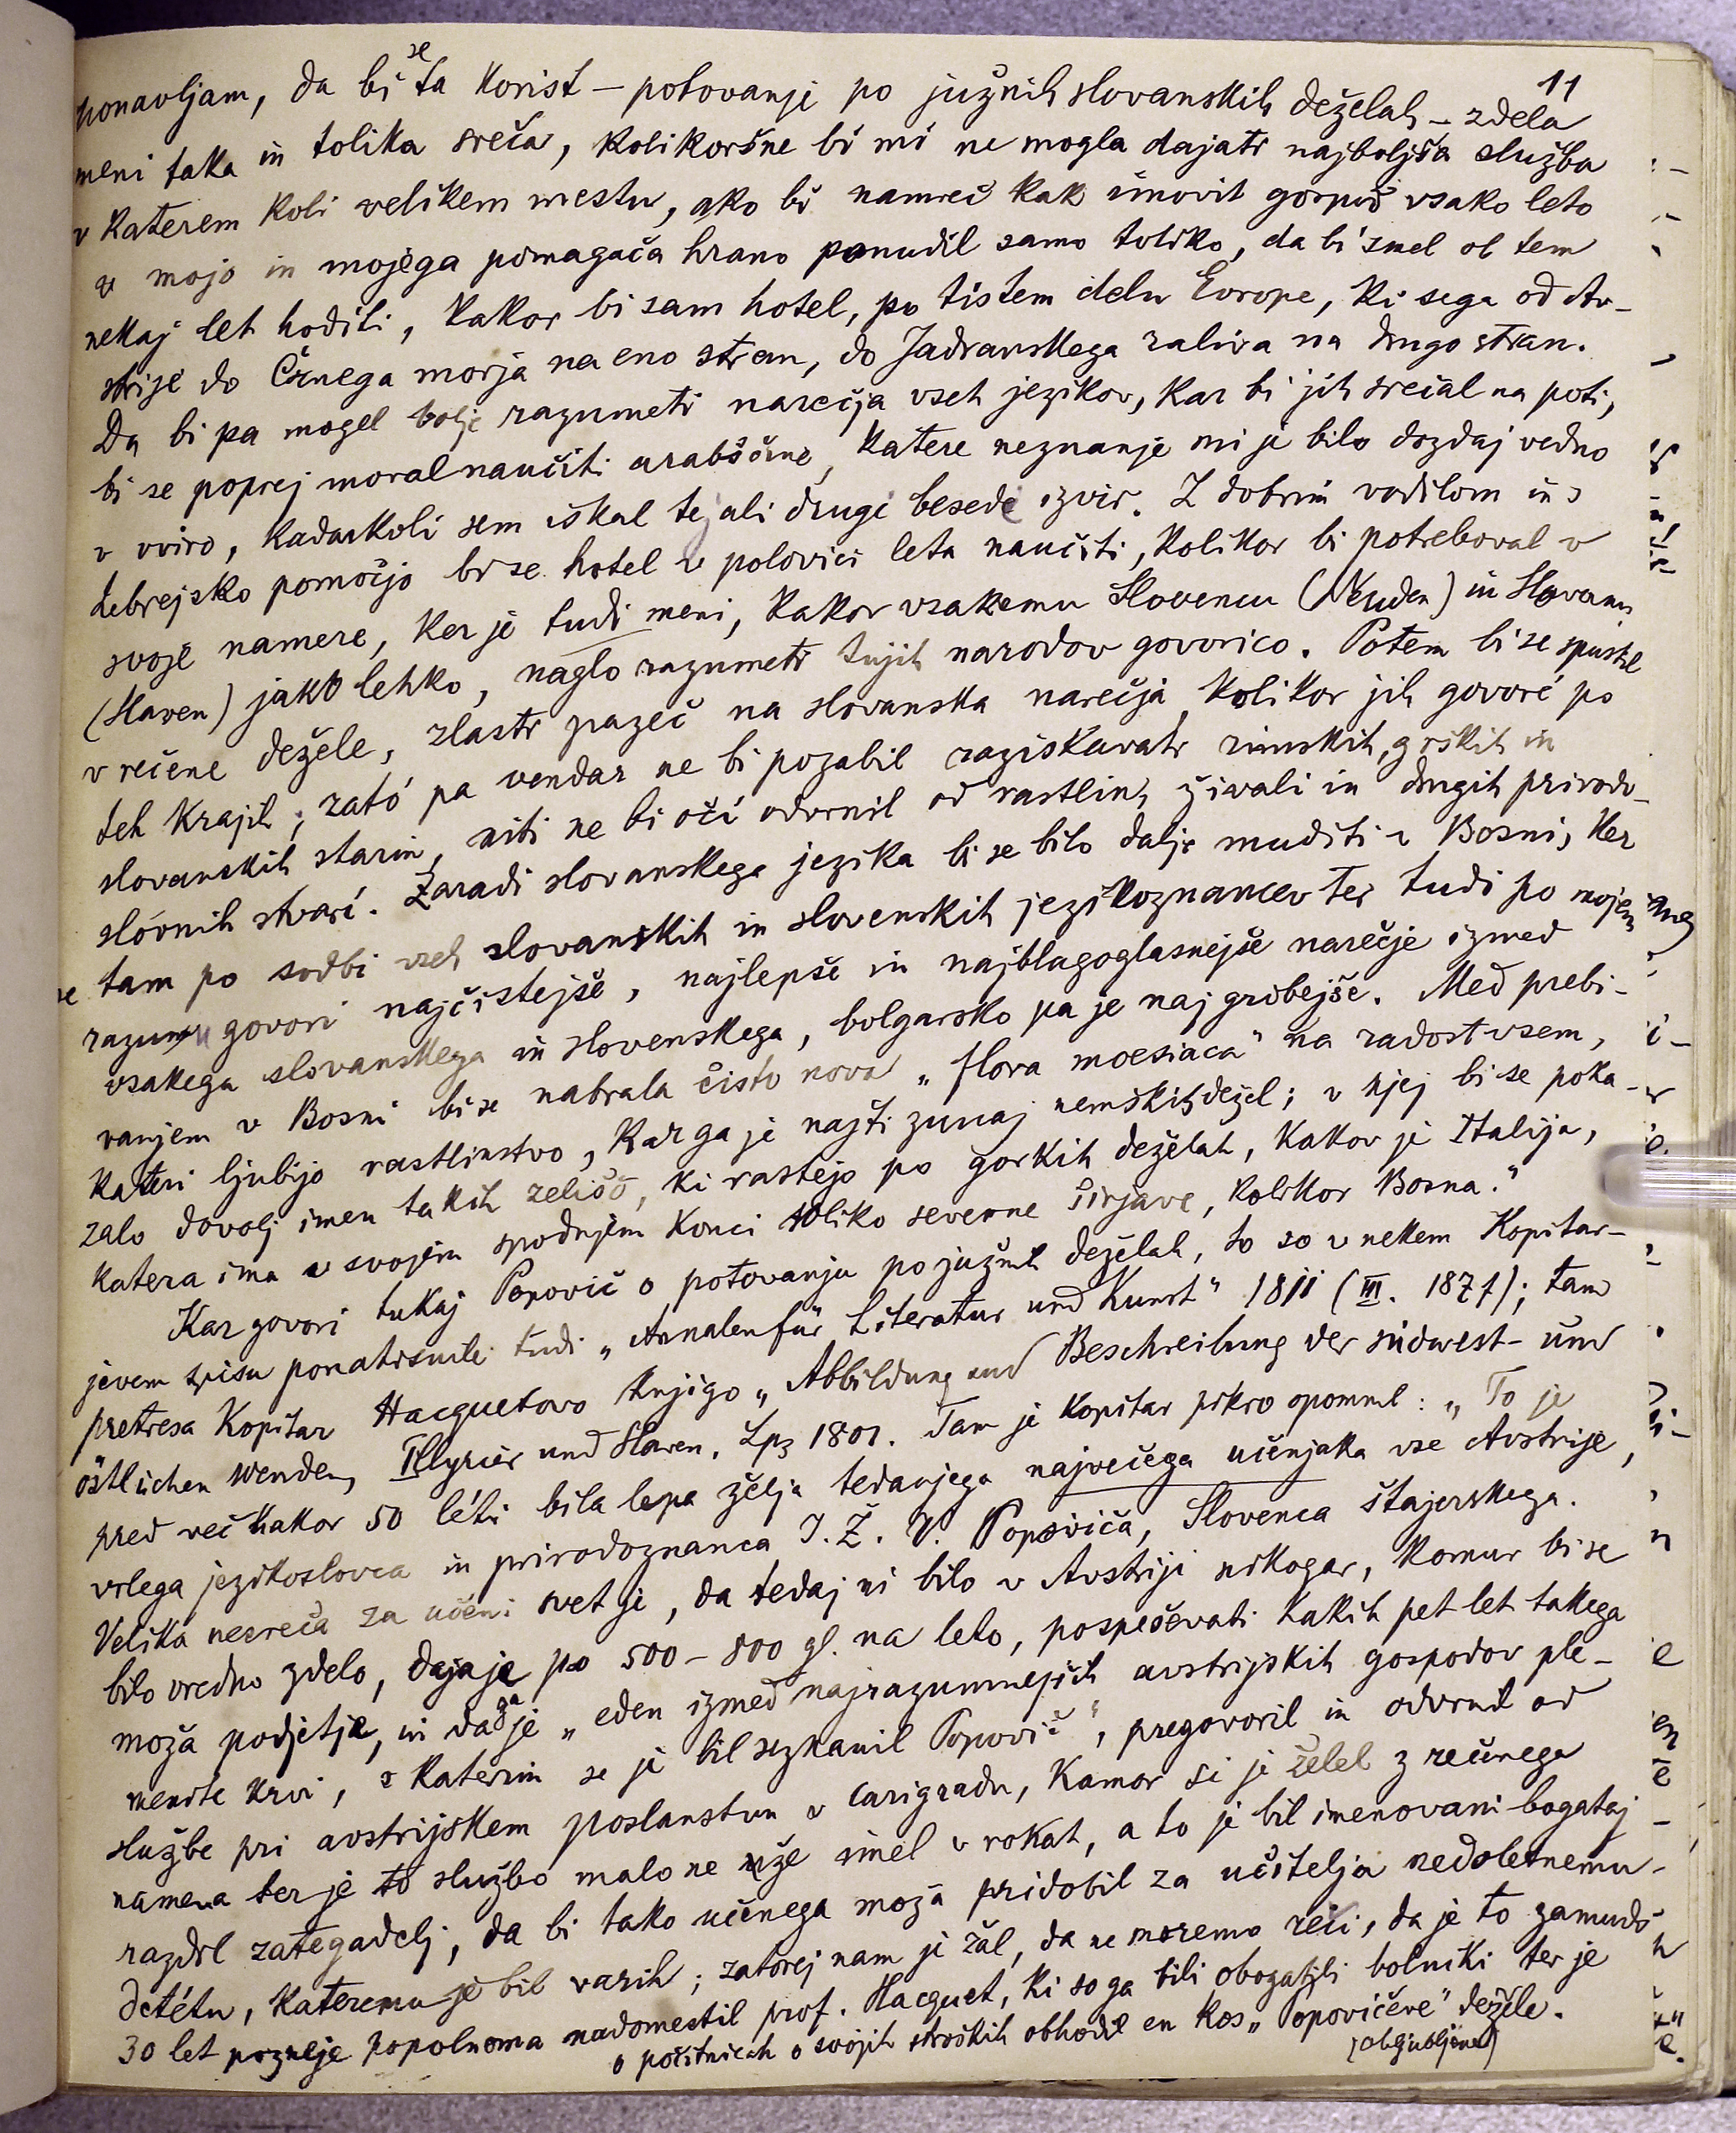 11
ponavljam, da bi se ta korist – potovanje po južnih slovanskih deželah – zdela
meni taka in tolika sreča, kolikoršne bi mi ne mogla dajati najboljša služba
v katerem koli velikem mestu, ako bi namreč kak imovit gospod vsako leto
v mojo in mojega pomagača hrano ponudil samo toliko, da bi smel ob tem
nekaj let hoditi, kakor bi sam hotel, po tistem delu Evrope, ki sega od Av-
strije do Črnega morja na eno stran, do Jadranskega zaliva na drugo stran.
Da bi pa mogel bolje razumeti narečja vseh jezikov, kar bi jih srečal na poti,
bi se poprej moral naučiti arabščine, katere neznanje mi je bilo dozdaj vedno
v oviro, kadarkoli sem iskal tej ali drugi besedi izvir. Z dobrim vodilom in s
hebrejsko pomočjo bi se hotel v polovici leta naučiti, kolikor bi potreboval v
svoje namere, ker je tudi meni, kakor vsakemu Slovencu (Wenden) in Slovanu
(Slaven) jako lehko, naglo razumeti tujih narodov govorico. Potem bi se spustil
v rečene dežele, zlasti pazeč na slovanska narečja, kolikor jih govoré po
teh krajih; zató pa vendar ne bi pozabil raziskavati rimskih, grških in
slovanskih starin, niti ne bi oči odvrnil od rastlin, živali in drugih prirodo-
slóvnih stvari. Zaradi slovanskega jezika bi se bilo dalje muditi v Bosni, ker
se tam po sodbi vseh slovanskih in slovenskih jezikoznancev ter tudi po mojem
razumu govori najčistejše, najlepše in najblagoglasnejše narečje izmed
vsakega slovanskega in slovenskega, bolgarsko pa je najgrobejše. Med prebi-
vanjem v Bosni bi se nabrala čisto nova „flora moesiaca" na radost vsem,
kateri ljubijo rastlinstvo, kar ga je najti zunaj nemških dežel; v njej bi se poka-
zalo dovolj imen takih zelišč, ki rastejo po gorkih deželah, kakor je Italija,
katera ima v svojem spodnjem konci toliko severne širjave, kolikor Bosna."
Kar govori tukaj Popovič o potovanju po južnih deželah, to so v nekem Kopitar-
jevem spisu ponatisnile tudi „Annalen für Literatur und Kunst" 1811 (III. 187 f); tam
pretresa Kopitar Hacquetovo knjigo „Abbildung und Beschreibung der südwest- und
östlichen Wenden, Illyrier und Slaven, Lpz 1801. Tam je Kopitar pikro opomnil: „To je
pred več kakor 50 léti bila lepa želja tedanjega največega učenjaka vse Avstrije,
vrlega jezikoslovca in prirodoznanca J. Ž. V. Popoviča, Slovenca štajerskega.
Velika nesreča za učeni svet je, da tedaj ni bilo v Avstriji nikogar, komur bi se
bilo vredno zdelo, dajaje po 500–800 gl. na leto, pospeševati kakih pet let takega
moža podjetje, in da ga je „eden izmed najrazumnejših avstrijskih gospodov ple-
menite krvi, s katerim se je bil seznanil Popovič", pregovoril in odvrnil od
službe pri avstrijskem poslanstvu v Carigradu, kamor si je želel z rečenega
namena ter je to službo malo ne uže imel v rokah, a to je bil imenovani bogataj
razdrl zategadelj, da bi tako učenega moža pridobil za učitelja nedoletnemu
detétu, kateremu je bil varih; zatorej nam je žal, da ne moremo reči, da je to zamudo
30 let pozneje popolnoma nadomestil prof. Hacquet, ki so ga bili obogatili bolniki ter je
o počitnicah o svojih stroških obhodil en kos „Popovičeve" dežéle.
(obljubljene)